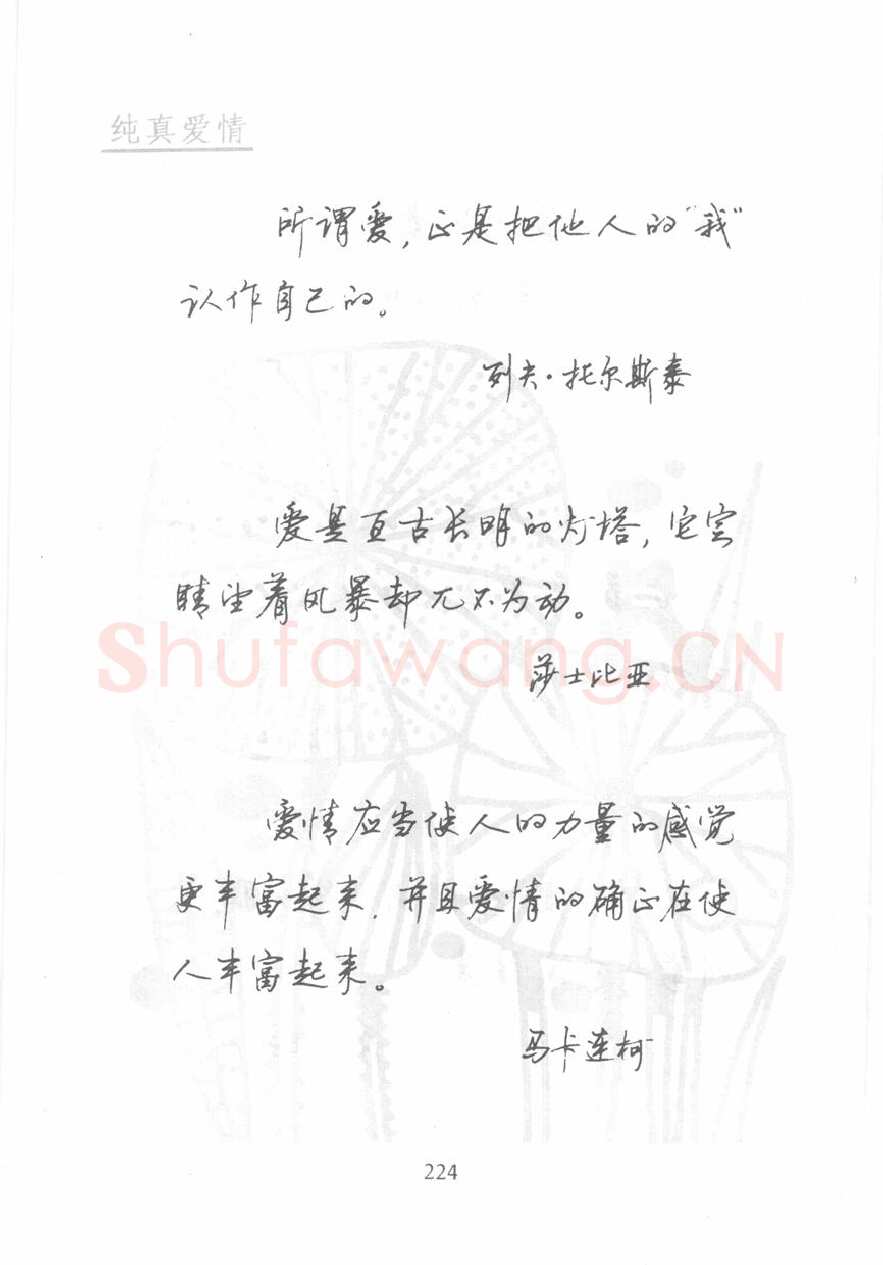 纯真爱情
所谓爱,正是把他人的“我”
认作自己的。
列夫·托尔斯泰
爱是亘古长明的灯塔,它定
睛望着风暴却兀不为动。
Shufawang.CN
莎士比亚
爱情应当使人的力量的感觉
更丰富起来,并且爱情的确正在使
人丰富起来。
马卡连柯
224